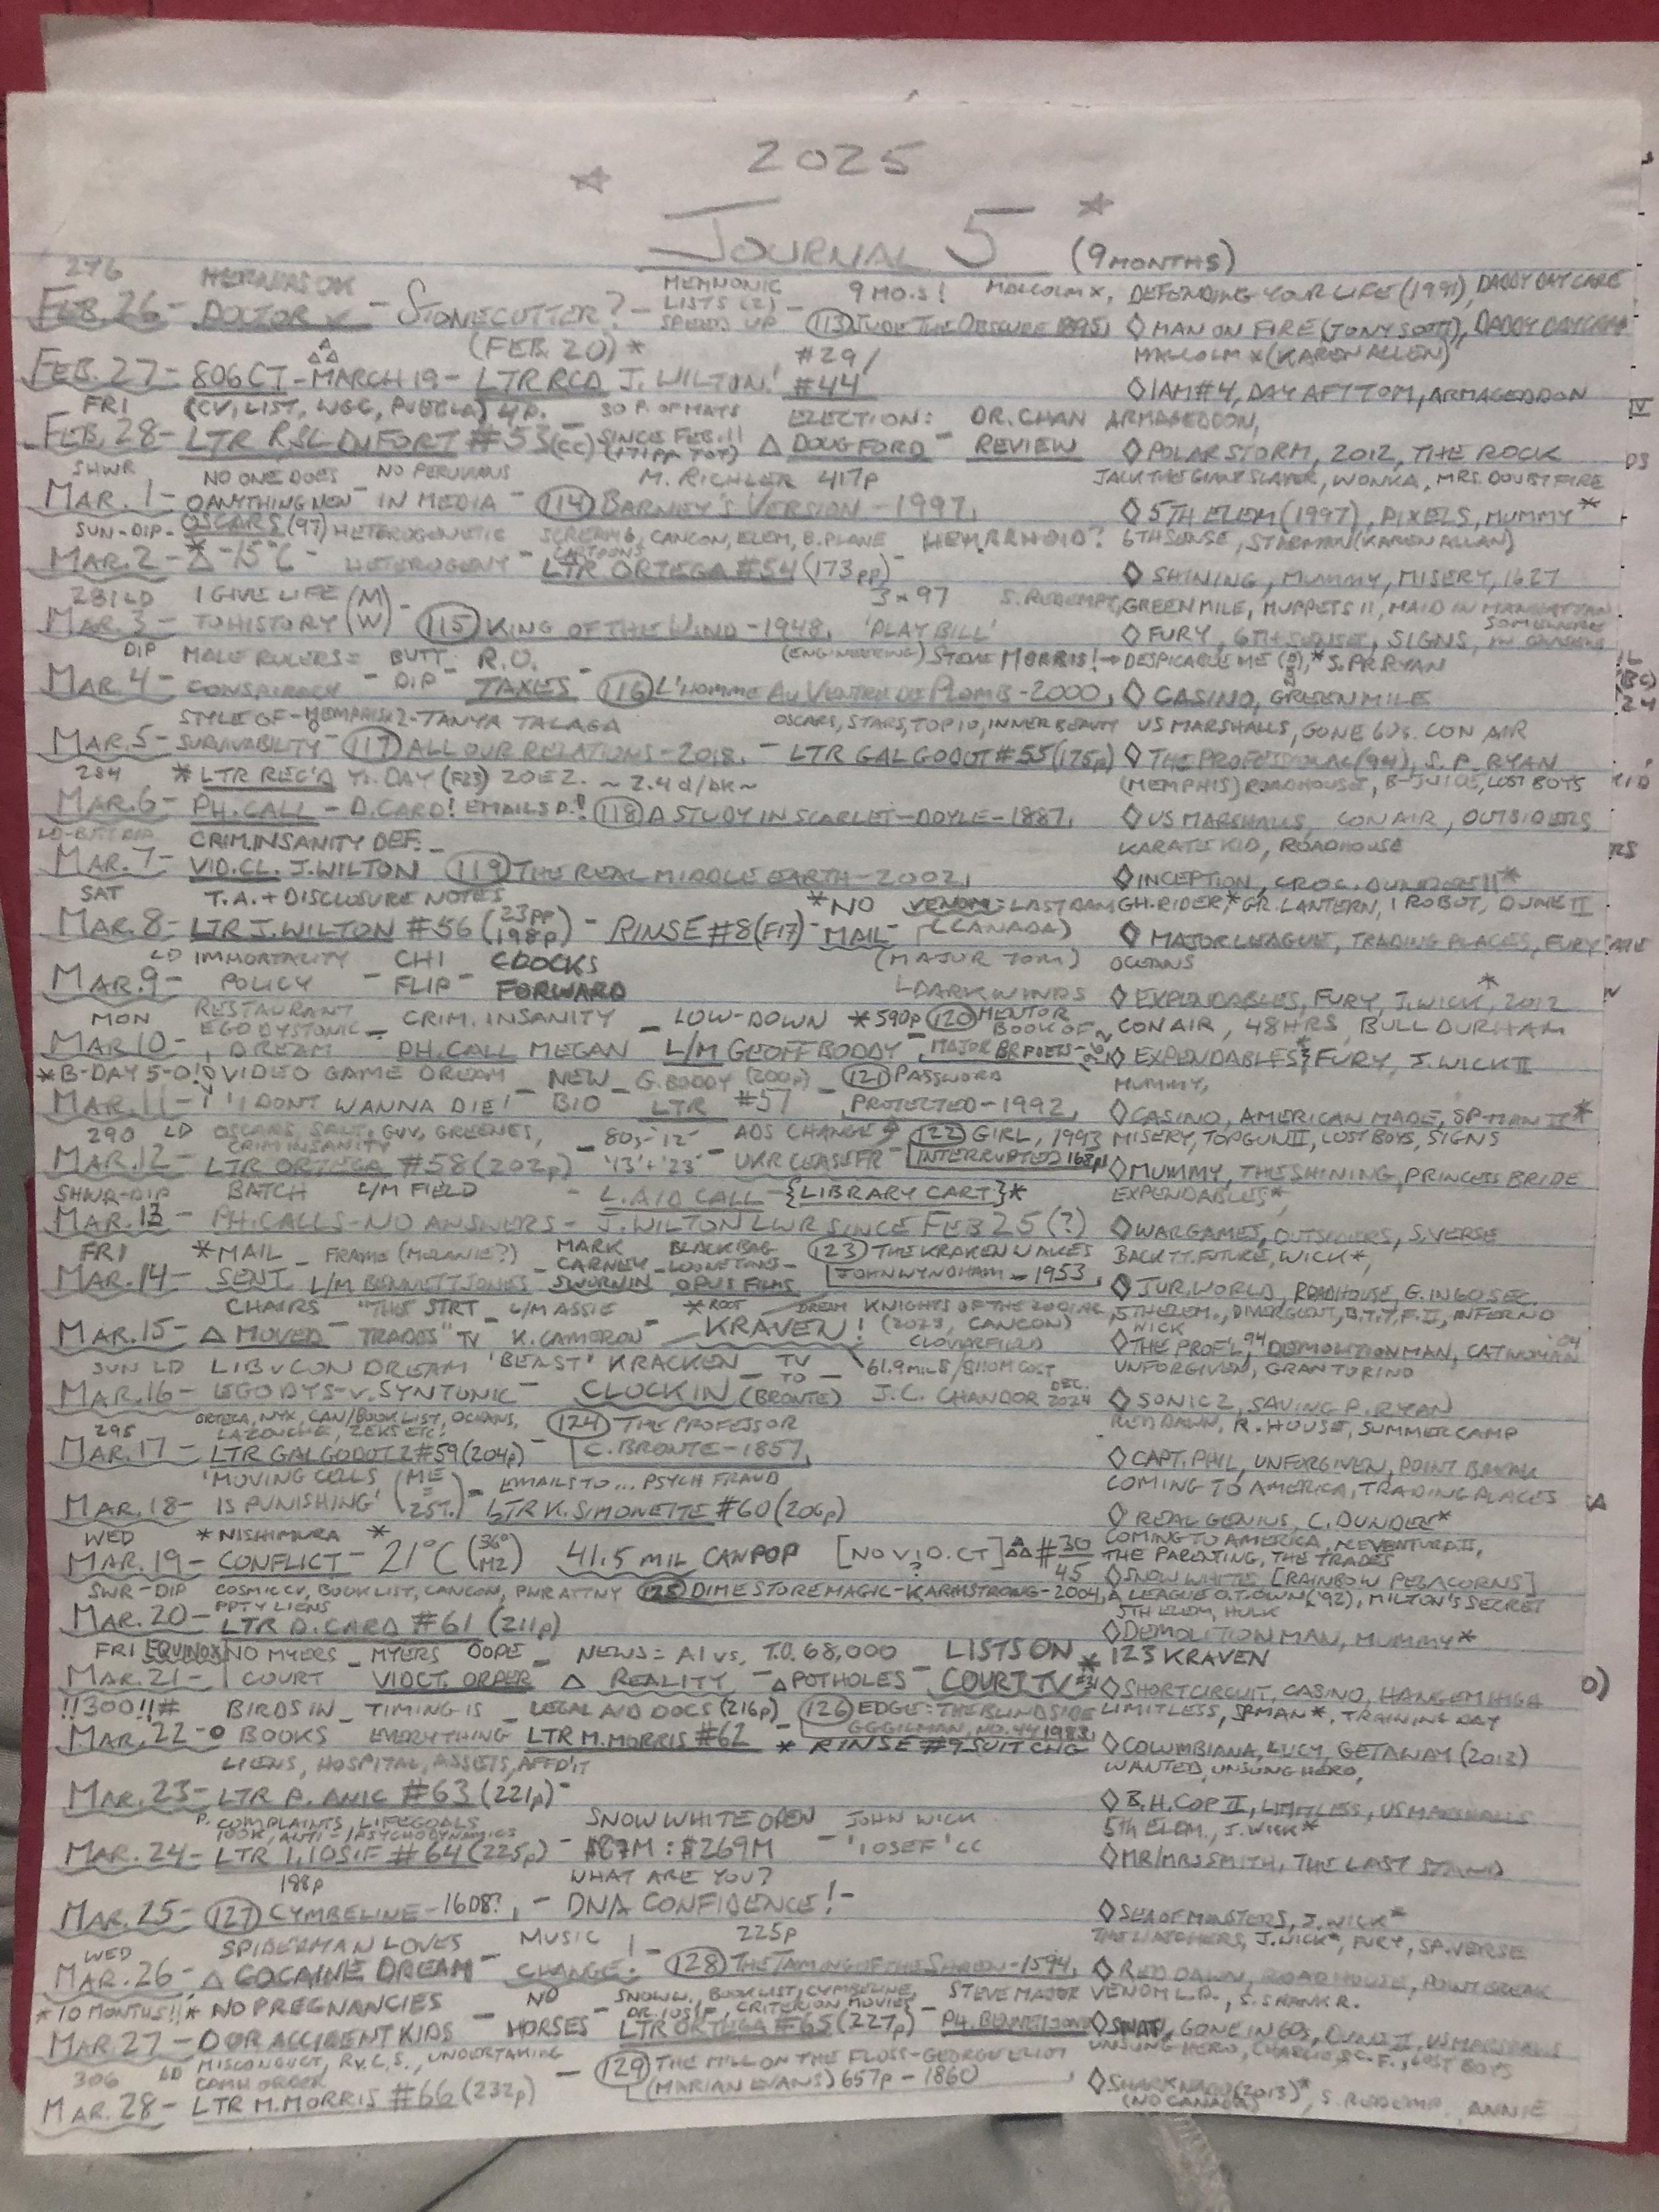 2025
JOURNAL 5 (9 MONTHS)
276 MEMNONIC 9 MO.S! MALCOLM X, DEFENDING YOUR LIFE (1991), DADDY DAY CARE
FEB. 26 - DOCTOR - STONECUTTER? - LISTS (2) SPEEDS UP - (113) JUDE THE OBSCURE 1895, ◊ MAN ON FIRE (TONY SCOTT), DADDY DAYCARE
(FEB. 20) * #29/ MALCOLM X (KAREN ALLEN)
FEB. 27 - 806 CT - MARCH 19 - LTR RCD J. WILTON! #44 ◊ I AM #4, DAY AFT TOM, ARMAGEDDON
FRI (CV, LIST, WGC, PUEBLA) 4p. ELECTION: DR. CHAN ARMAGEDDON,
FEB. 28 - LTR RSL DUFORT #53 (CC) SINCE FEB. 11 (171pp TOT) △ DOUG FORD - REVIEW ◊ POLAR STORM, 2012, THE ROCK
SHWR NO ONE DOES NO PERUVIANS M. RICHLER 417p JACK THE GIANT SLAYER, WONKA, MRS. DOUBTFIRE
MAR. 1 - ANYTHING NEW - IN MEDIA - (114) BARNEY'S VERSION - 1997, ◊ 5TH ELEM (1997), PIXELS, MUMMY *
SUN - DIP - OSCARS (97) HETEROGENETIC SCREAM 6, CANCON, ELEM, B. PLANE HEMRRHOID? 6TH SENSE, STARMAN (KAREN ALLAN)
MAR. 2 - △ -15°C - HETEROGENY - LTR CARTOONS ORTEGA #54 (173pp) - ◊ SHINING, MUMMY, MISERY, 1627
281 LD I GIVE LIFE (M 3 x 97 S. REDEMPT, GREEN MILE, MUPPETS II, MAID IN MANHATTAN
MAR. 3 - TO HISTORY W) - (115) KING OF THE WIND - 1948, 'PLAYBILL' ◊ FURY, 6TH SENSE, SIGNS,
DIP MALE RULERS = BUTT R.O. (ENGINEERING) STEVE MORRIS! → DESPICABLE ME, * S. PR. RYAN
MAR. 4 - CONSPIRACY - DIP - TAXES (116) L'HOMME AU VENTRE DE PLOMB - 2000, ◊ CASINO, GREEN MILE
STYLE OF - MEMPHIS 2 - TANYA TALAGA OSCARS, STARS, TOP 10, INNER BEAUTY US MARSHALLS, GONE 60s. CON AIR
MAR. 5 - SURVIVABILITY - (117) ALL OUR RELATIONS - 2018, - LTR GAL GODOT #55 (175p) ◊ THE PROFESSIONAL (94), S. P. RYAN
284 * LTR REC'D TI. DAY (F23) 20 EZ. ~ 2.4 d/bk ~ (MEMPHIS) ROADHOUSE, B-JUICE, LOST BOYS
MAR. 6 - PH. CALL - D. CARD! EMAILS D.! (118) A STUDY IN SCARLET - DOYLE - 1887, ◊ US MARSHALLS, CON AIR, OUTSIDERS
LD - BUTT DIP CRIM. INSANITY DEF. - KARATE KID, ROADHOUSE
MAR. 7 - VID. CL. J. WILTON (119) THE REAL MIDDLE EARTH - 2002, ◊ INCEPTION, CROC. DUNDEE II *
SAT T.A. + DISCLOSURE NOTES * NO VENOM: LAST DAM GH. RIDER, * GR. LANTERN, I ROBOT, DUNE II
MAR. 8 - LTR J. WILTON #56 (23pp 198p) - RINSE #8 (F17) - MAIL - (CANADA) ◊ MAJOR LEAGUE, TRADING PLACES, FURY
LD IMMORTALITY CHI CLOCKS (MAJOR TOM) OCEANS
MAR. 9 - POLICY - FLIP - FORWARD DARK WINDS ◊ EXPENDABLES, FURY, J. WICK *, 2012
MON RESTAURANT EGODYSTONIC CRIM. INSANITY LOW-DOWN * 590p (120) MENTOR BOOK OF CON AIR, 48 HRS, BULL DURHAM
MAR 10 - DREAM - PH. CALL MEGAN - L/M GEOFF BODDY, MAJOR BR POETS - ◊ EXPENDABLES 3, FURY, J. WICK II
* B-DAY 5-0! VIDEO GAME DREAM - NEW - G. BODDY (200p) - (121) PASSWORD MUMMY,
MAR. 11 - 'I DONT WANNA DIE!' BIO LTR #57 PROTECTED - 1992, ◊ CASINO, AMERICAN MADE, SP-MAN II *
290 LD OSCARS, SALT, GUV, GREENES, CRIM INSANITY - 80s - '12' ADS CHANGE (122) GIRL, 1993 MISERY, TOPGUN II, LOST BOYS, SIGNS
MAR. 12 - LTR ORTEGA #58 (202p) - '13' + '23' - UKR CEASEFR - INTERRUPTED 168p, ◊ MUMMY, THE SHINING, PRINCESS BRIDE
SHWR - DIP BATCH L/M FIELD - L. AID CALL - {LIBRARY CART} * EXPENDABLES *,
MAR. 13 - PH. CALLS - NO ANSWERS - J. WILTON LWR SINCE FEB 25 (?) ◊ WARGAMES, OUTSIDERS, S. VERSE
FRI * MAIL - FRAME (MELANIE?) MARK BLACK BAG (123) THE KRAKEN WAKES BACK TT. FUTURE, WICK *,
MAR. 14 - SENT L/M BENNETT JONES - CARNEY SWORN IN - LOONEY TUNES - OPUS FILMS JOHN WYNDHAM - 1953, ◊ JUR. WORLD, ROADHOUSE, G. IN 60 SEC.
CHAIRS "THIS STRT - L/M ASSIE * ROOT DREAM KNIGHTS OF THE ZODIAC 5TH ELEM., DIVERGENT, B.T.T.F. II, INFERNO
MAR. 15 - △ MOVED TRADES" TV K. CAMERON - KRAVEN! (2023, CANCON) CLOVERFIELD WICK ◊ THE PROF'L, 94 DEMOLITION MAN, CATWOMAN '04
SUN LD LIB v CON DREAM 'BEAST' KRACKEN - TV TO - 61.9 MIL $ / $110M COST UNFORGIVEN, GRAN TORINO
MAR. 16 - EGODYS - v. SYNTONIC - CLOCK IN (BRONTE) J.C. CHANDOR DEC. 2024 ◊ SONIC 2, SAVING P. RYAN
ORTEGA, NYX, CAN/BOOK LIST, OCEANS, (124) THE PROFESSOR RED DAWN, R. HOUSE, SUMMER CAMP
295 LAZOUCHE, ZEKS ETC!
MAR. 17 - LTR GAL GODOT 2 #59 (204p) - C. BRONTE - 1857, ◊ CAPT. PHIL, UNFORGIVEN, POINT BREAK
'MOVING CELLS (ME = - EMAILS TO... PSYCH FRAUD COMING TO AMERICA, TRADING PLACES
MAR. 18 - IS PUNISHING' 25T.) LTR K. SIMONETTE #60 (206p) ◊ REAL GENIUS, C. DUNDEE *
WED * NISHIMURA * COMING TO AMERICA, ACE VENTURA II,
MAR. 19 - CONFLICT - 21°C (36° MZ) 41.5 MIL CAN POP [NO VID. CT] ? #30 45 THE PARENTING, THE TRADES
SWR - DIP COSMIC CV, BOOK LIST, CANCON, PWR ATTNY (125) DIME STORE MAGIC - K ARMSTRONG - 2004, ◊ SNOW WHITE [RAINBOW PEGACORNS]
PPTY LIENS A LEAGUE O.T. OWN ('92), MILTON'S SECRET
MAR. 20 - LTR D. CARD #61 (211p) 5TH ELEM, HULK
◊ DEMOLITION MAN, MUMMY *
FRI EQUINOX NO MYERS - MYERS DOPE - NEWS = AI vs. T.O. 68,000 - LISTS ON * 123 KRAVEN
MAR. 21 - COURT VIDCT. ORDER △ REALITY - △ POTHOLES - COURT TV #31 ◊ SHORT CIRCUIT, CASINO, HANG EM HIGH
!!300!!# BIRDS IN - TIMING IS - LEGAL AID DOCS (216p) (126) EDGE: THE BLINDSIDE LIMITLESS, SPMAN *, TRAINING DAY
MAR. 22 - BOOKS EVERYTHING LTR M. MORRIS #62 - GG GILMAN, NO. 44 1983, ◊ COLUMBIANA, LUCY, GETAWAY (2013)
LIENS, HOSPITAL, ASSETS, AFFD'IT * RINSE #9 SUIT CHG WANTED, UNSUNG HERO,
MAR. 23 - LTR P. ANIC #63 (221p) - ◊ B.H. COP II, LIMITLESS, US MARSHALLS
P. COMPLAINTS, LIFEGOALS SNOW WHITE OPEN JOHN WICK 5TH ELEM., J. WICK *
100K, ANTI-/PSYCHODYNAMICS
MAR. 24 - LTR I. IOSIF #64 (225p) - $87M : $269M - 'IOSEF' CC ◊ MR/MRS SMITH, THE LAST STAND
198p WHAT ARE YOU?
MAR. 25 - (127) CYMBELINE - 1608?, - DNA CONFIDENCE! - ◊ SEA OF MONSTERS, J. WICK *
WED SPIDERMAN LOVES MUSIC 225p THE WATCHERS, J. WICK *, FURY, SP. VERSE
MAR. 26, △ COCAINE DREAM - CHANGE! - (128) THE TAMING OF THE SHREW - 1594, ◊ RED DAWN, ROADHOUSE, POINT BREAK
* 10 MONTHS!! * NO PREGNANCIES - NO - SNOW W., BOOK LIST, CYMBELINE, DR. IOSIF, CRITERION MOVIES - STEVE MAJOR VENOM L.D., S. SHANK R.
MAR. 27 - OOR ACCIDENT KIDS HORSES LTR ORTEGA #65 (227p) PH. BENNETT JONES ◊ SWAT, GONE IN 60s, DUNE II, US MARSHALLS
306 LD MISCONDUCT, R.v.C.S., UNDERTAKING - (129) THE MILL ON THE FLOSS - GEORGE ELIOT UNSUNG HERO, CHARLIE & C. F., LOST BOYS
CAMH ORDER
MAR. 28 - LTR M. MORRIS #66 (232p) (MARIAN EVANS) 657p - 1860 ◊ SHARKNADO (2013) *, S. REDEMP. ANNIE
(NO CANADA)